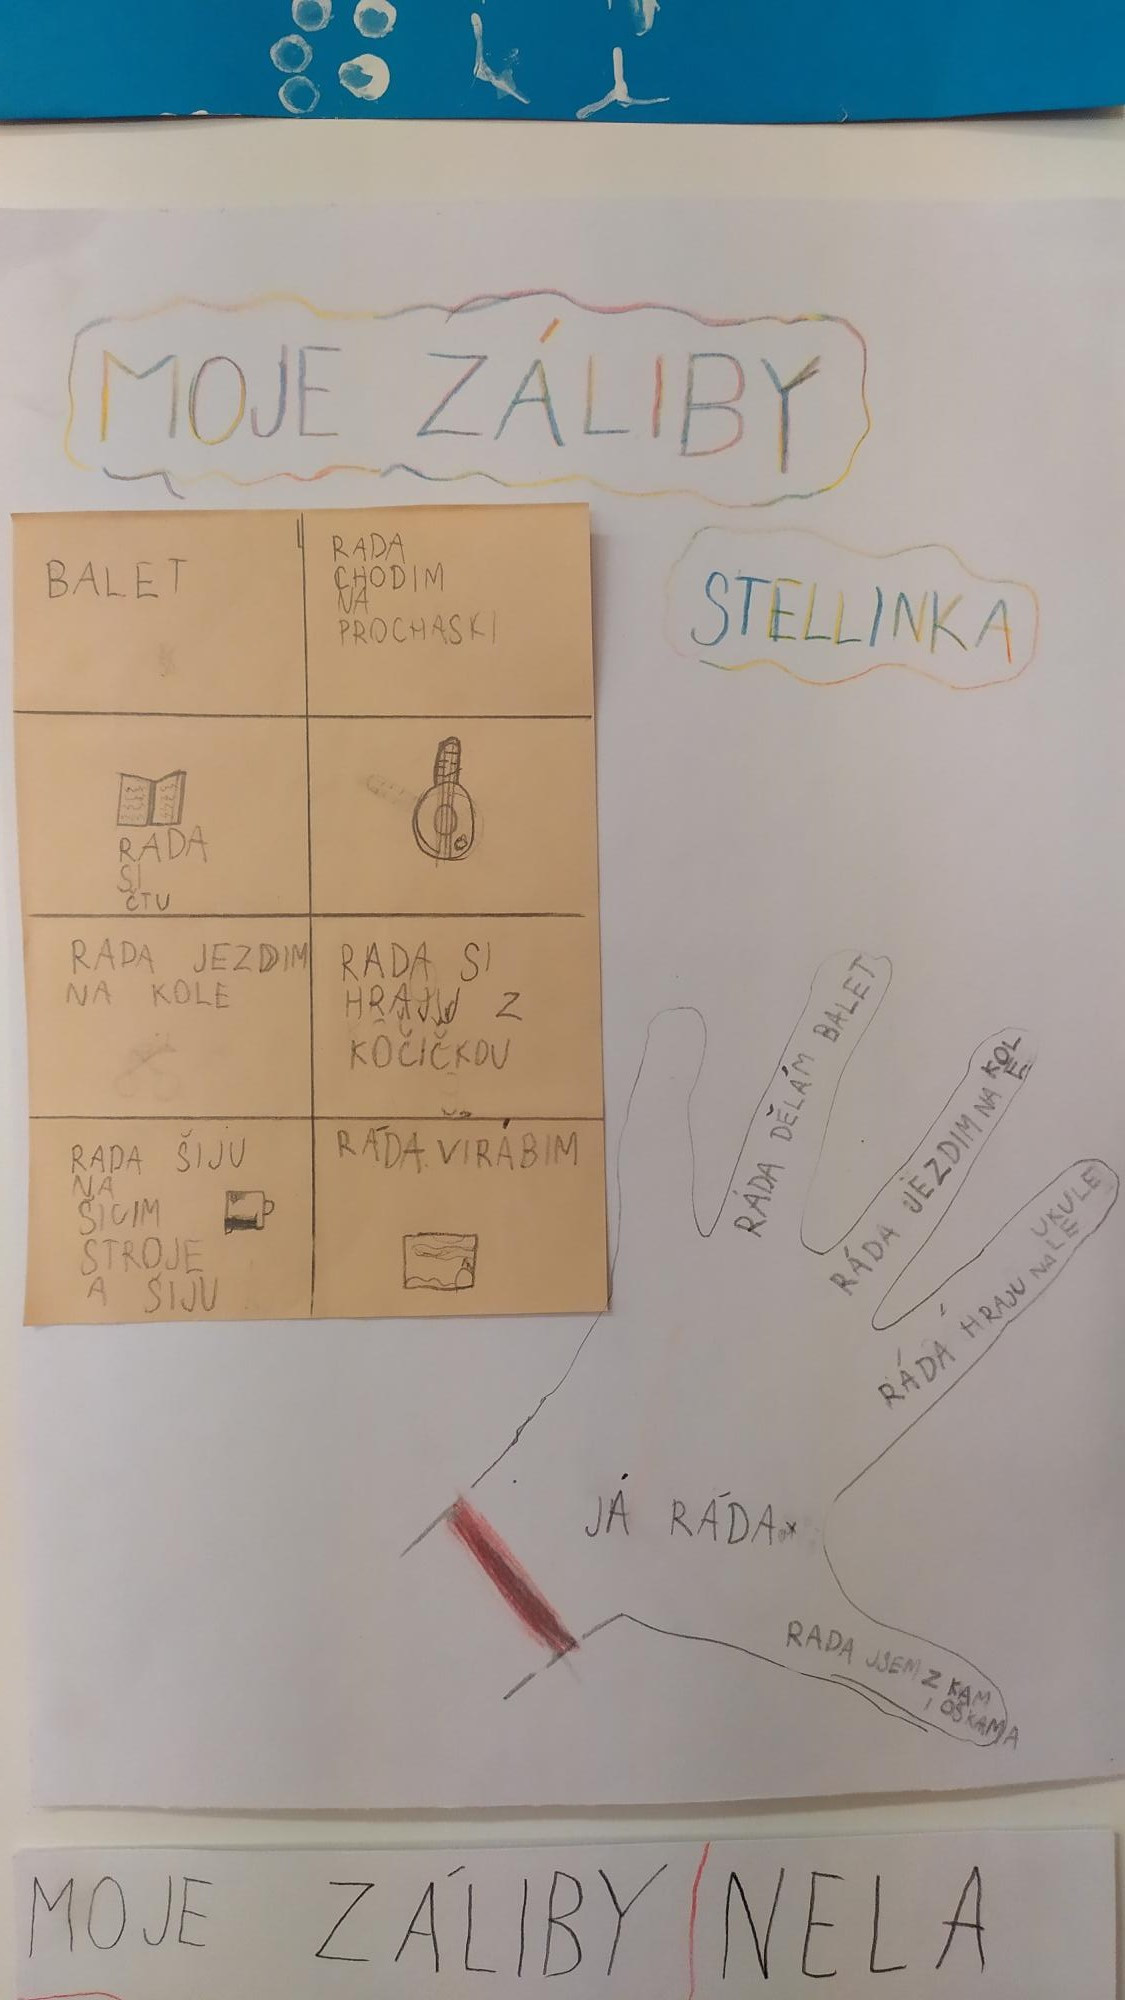 MOJE ZÁLIBY
STELLINKA
BALET
RADA
CHODIM
NA
PROCHASKI
RADA
SI
ČTU
RADA JEZDIM
NA KOLE
RADA SI
HRAJU Z
KOČIČKOU
RADA ŠIJU
NA
ŠICIM
STROJE
A ŠIJU
RÁDA VIRÁBIM
RÁDA DĚLÁM BALET
RÁDA JEZDIM NA KOL
E
RÁDA HRAJU NA UKULE
LE
JÁ RÁDA
RADA JSEM Z KAM
OŠKAMA
MOJE ZÁLIBY NELA